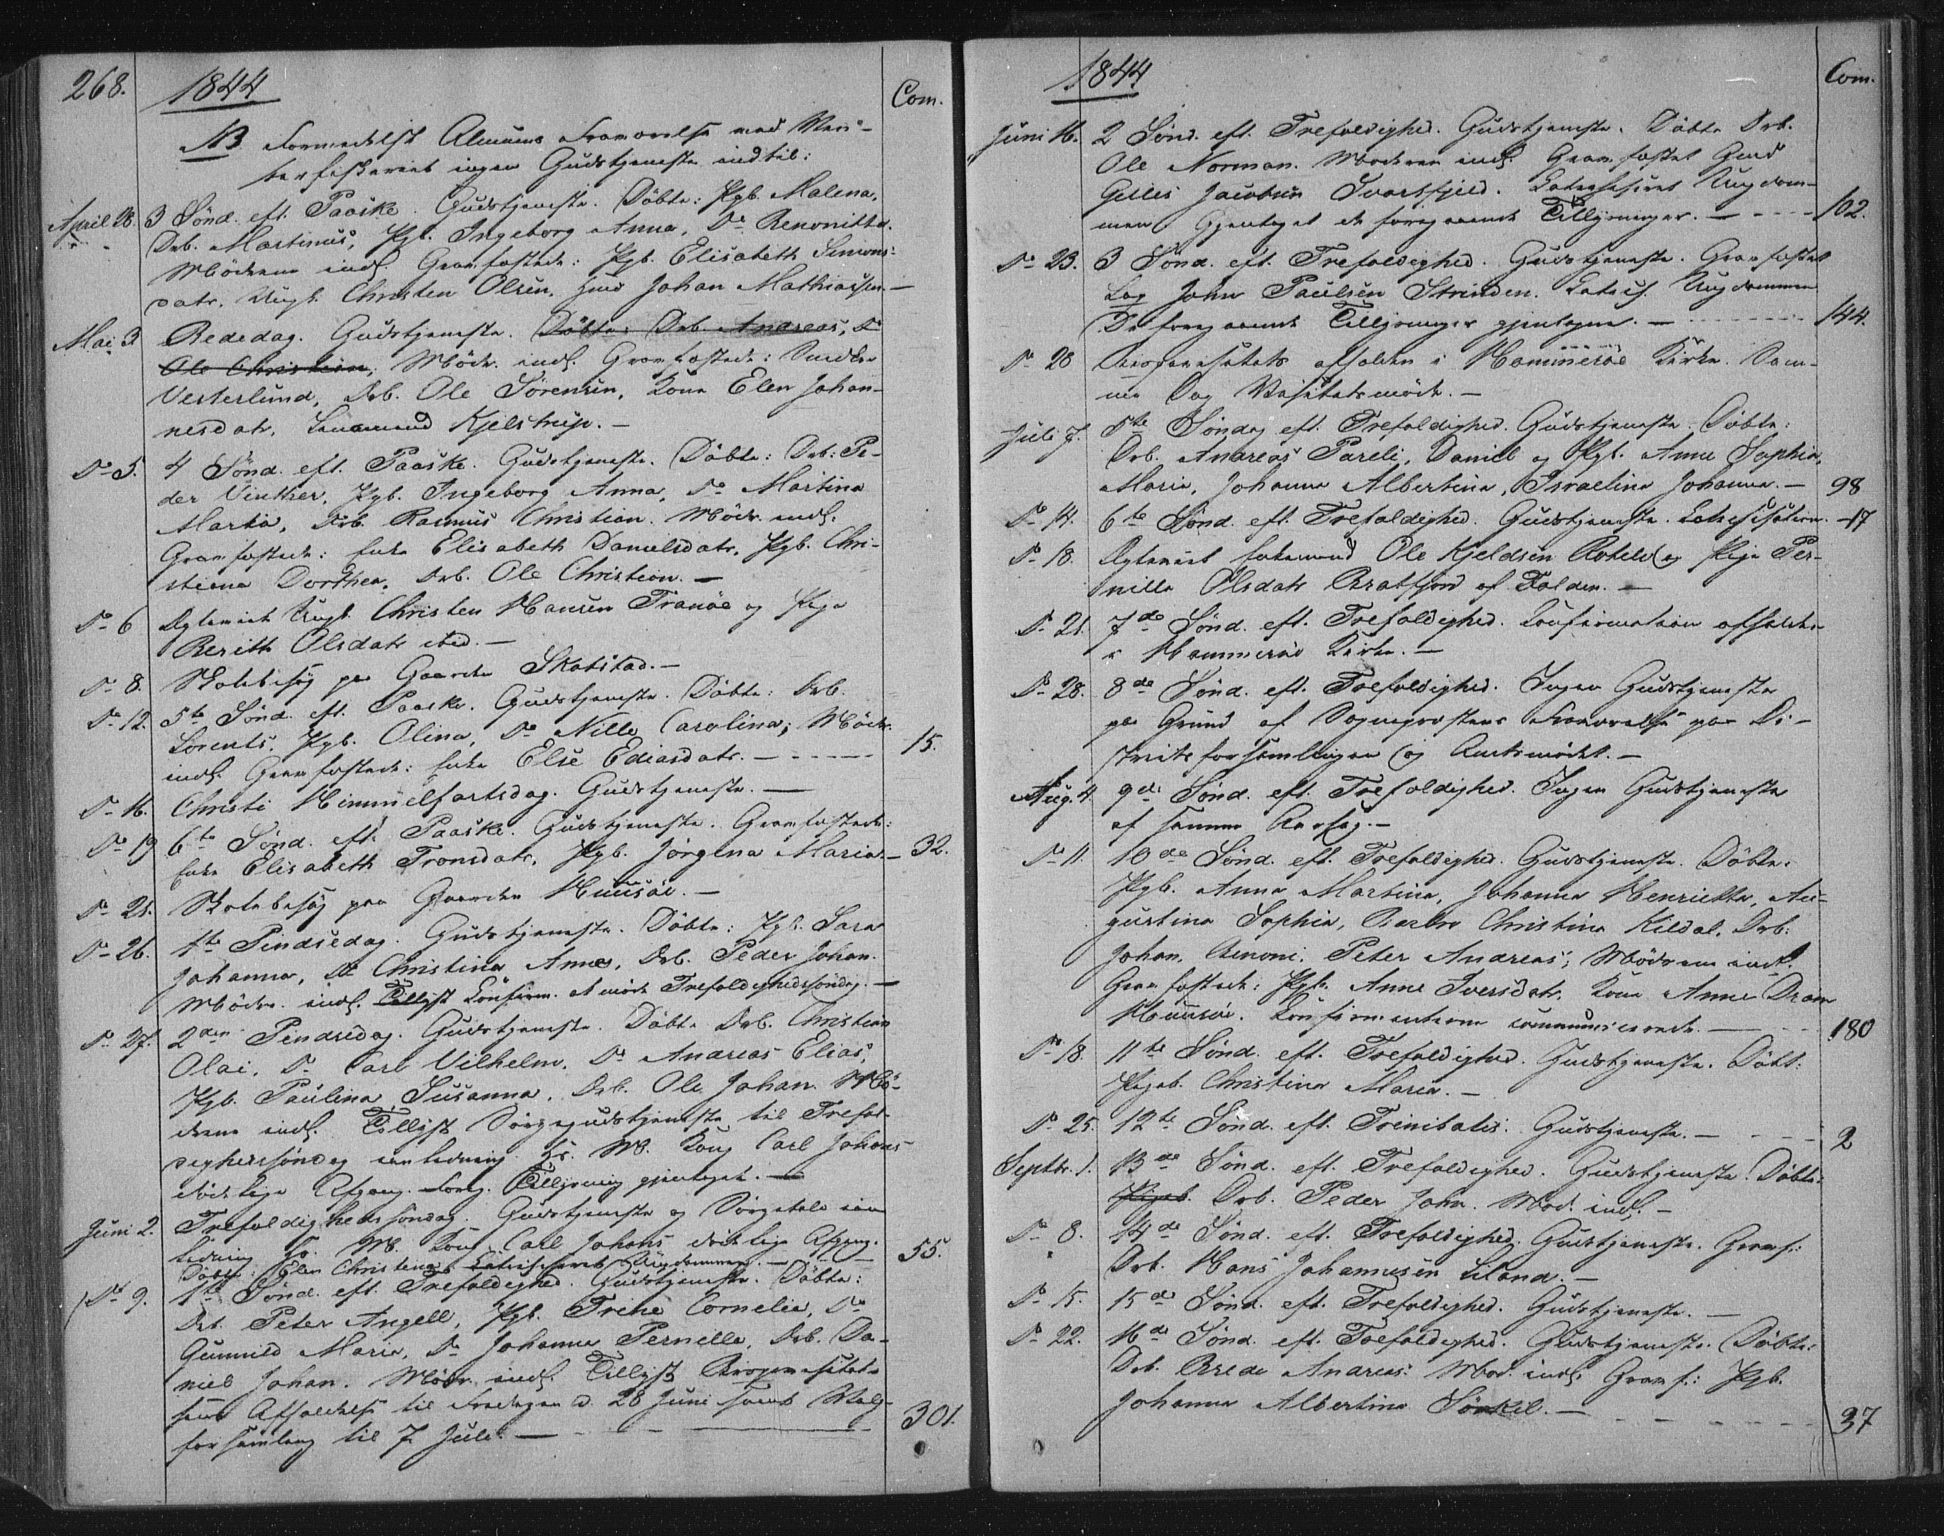 268.
1844
Com.
NB Formedelst Almuens Fraværelse med Vaar-
terfiskeriet ingen Gudstjeneste indtil:
April 28. 3 Sønd. eft. Paaske. Gudstjeneste. Döbte: Pgb. Malena,
Drb. Martinus, Pgb. Ingeborg Anna, Do Renonitha.
Mödrene indl. Gravfæstede: Pgb. Elisabeth Simons-
datr. Ungk. Christen Olsen, Huusmd Johan Mathiassen. —
Mai 3 Bededag. Gudstjeneste. Döbte: Drb. Andreas, Do
Ole Christian, Mödr. indl. Gravfæstede: Snedker
Vesterlund, Drb. Ole Sörensen, Kone Elen Johan-
nesdatr, Lensmand Kjelstrup. —
Do 5. 4 Sönd. eft. Paaske. Gudstjeneste. Döbte: Drb. Pe-
der Vinther, Pgb. Ingeborg Anna, Do Martina
Maria, Drb. Rasmus Christian. Mödr. indl.
Gravfæstede: Enke Elisabeth Danielsdatr, Pgb. Chri-
stiana Dorthea, Drb. Ole Christian. —
Do 6 Ægteviet Ungk. Christen Hansen Tranöe og Pige
Berith Olsdatr ibid. —
Do 8. Skolebesög paa Gaarden Skotstad. —
Do 12. 5te Sönd. eft. Paaske. Gudstjeneste. Döbte: Drb.
Lorents, Pgb. Olina, Do Nille Carolina; Mödr.
indl. Gravfæstede: Enke Else Ediasdatr. — 15.
Do 16. Christi Himmelfartsdag. Gudstjeneste. —
Do 19 6te Sönd. eft. Paaske. Gudstjeneste. Gravfæstede:
Enke Elisabeth Tronsdatr, Pgb. Jörgine Maria. — 32.
Do 21. Skolebesög paa Gaarden Huusöe. —
Do 26. 1te Pindsedag. Gudstjeneste. Döbte: Pgb. Sara
Johanna, Do Christina Anna, Drb. Peder Johan.
Mödre. indl. Tillyst Konfirm. at möde Trefoldighedssöndag. —
Do 27. 2den Pindsedag. Gudstjeneste. Döbte Drb. Christian
Olai, Do Carl Vilhelm, Do Andreas Elias,
Pgb. Paulina Susanna, Drb. Ole Johan. Mö-
drene indl. Tillyst Sörgegudstjeneste til Trefol-
dighedssöndag i anledning Hs. M. Kong Carl Johans
dödelige Afgang. Forrig Tillysning gjentaget. —
Juni 2. Trefoldighedssöndag. Gudstjeneste og Sörgetale i an-
ledning Hs. M. Kong Carl Johans dödelige Afgang. 55.
Döbte: Elen Christena. Catechiseret Ungdommen. —
Do 9. 1te Sönd. eft. Trefoldighed. Gudstjeneste. Döbte:
Drb. Peter Angell, Pgb. Trine Cornelia, Do
Gunnild Maria, Do Johanna Pernella, Drb. Da-
niel Johan. Mödr. indl. Tillyst Provsevisitats
samt Afholdelse til Fredagen d. 28 Juni samt Valg-
forsamling til 7 Juli. — 301.
1844
Com.
Juni 16. 2 Sönd. eft. Trefoldighed. Gudstjeneste. Döbte Drb.
Ole Norman. Moderen indl. Gravfæstet Huusmd
Gilles Jacobsen Svartfjeld. Catechiseret Ungdom-
men. Gjentaget de foregaaende Tillysninger. — 102.
Do 23. 3 Sönd. eft. Trefoldighed. Gudstjeneste. Gravfæstet
Log John Paulsen Strinden. Catech. Ungdommen
De foregaaende Tillysninger gjentagne. — 144.
Do 28 Provsevisitats afholden i Hammeröe Kirke. Sam-
me Dag Visitatsmöde. —
Juli 7. 5te Söndag eft. Trefoldighed. Gudstjeneste. Döbte:
Drb. Andreas Pareli, Daniel og Pgb. Anne Sophia,
Maria, Johanna Albertina, Israelina Johanna. — 98
Do 14. 6te Sönd. eft. Trefoldighed. Gudstjeneste. Catechisation. — 17
Do 18. Ægteviet Enkemand Ole Kjeldsen Roteld og Pige Per-
nilla Olsdatr Bratfjord af Folden. —
Do 21. 7de Sönd. eft. Trefoldighed. Konfirmation afholden
i Hammeröe Kirke. —
Do 28. 8de Sönd. eft. Trefoldighed. Ingen Gudstjeneste
paa Grund af Sognepræstens Fraværelse paa Di-
striktsforsamlingen og Amtsmödet. —
Aug. 4. 9de Sönd. eft. Trefoldighed. Ingen Gudstjeneste
af samme Aarsag. —
Do 11. 10de Sönd. eft. Trefoldighed. Gudstjeneste. Döbte:
Pgb. Anna Martina, Johanna Henrietta, Au-
gustina Sophia, Christina Kildal, Drb.
Johan Benoni, Peter Andreas; Mödrene indl.
Gravfæstede: Pgb. Anne Iversdatr, Kone Anne
Huusöe. Konfirmanterne communicerede. — 180
Do 18. 11te Sönd. eft. Trefoldighed. Gudstjeneste. Döbt:
Pigeb. Christina Maria. —
Do 25. 12te Sönd. eft. Trinitatis. Gudstjeneste. — 2
Septbr. 1. 13de Sönd. eft. Trefoldighed. Gudstjeneste. Döbte:
Pigeb. Drb. Peder John. Mod. indl. —
Do 8. 14de Sönd. eft. Trefoldighed. Gudstjeneste. Gravf.:
Drb. Hans Johannesen Leland. —
Do 15. 15de Sönd. eft. Trefoldighed. Gudstjeneste. —
Do 22. 16de Sönd. eft. Trefoldighed. Gudstjeneste. Döbte:
Drb. Brede Andreas. Mod. indl. Gravf.: Pgb.
Johanna Albertina Sörkil. — 37